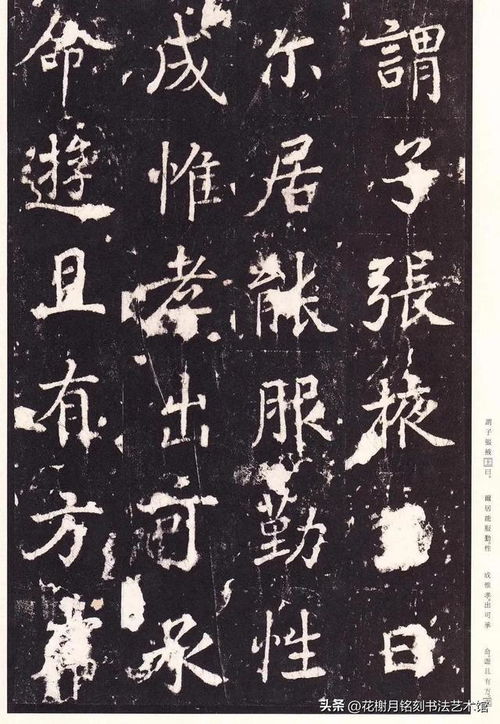 謂子張掖曰
尔居能服勤性
成惟孝出可承
命遊且有方常
謂子張掖上曰。 爾居能服勤性 成惟孝出可承 命遊且有方
头条 @花榭月铭刻书法艺术馆